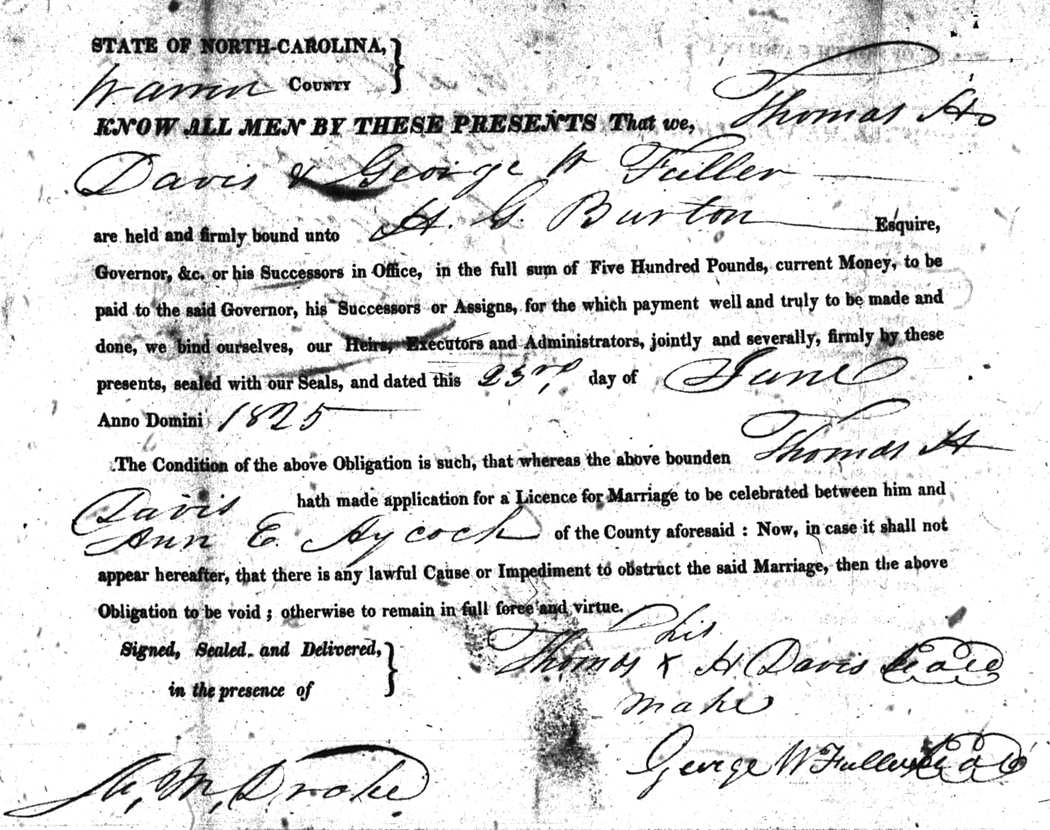 STATE OF NORTH-CAROLINA, }
Warren COUNTY
KNOW ALL MEN BY THESE PRESENTS That we, Thomas H.
Davis & George W Fuller
are held and firmly bound unto H. G. Burton Esquire,
Governor, &c. or his Successors in Office, in the full sum of Five Hundred Pounds, current Money, to be
paid to the said Governor, his Successors or Assigns, for the which payment well and truly to be made and
done, we bind ourselves, our Heirs, Executors and Administrators, jointly and severally, firmly by these
presents, sealed with our Seals, and dated this 23rd day of June
Anno Domini 1825
The Condition of the above Obligation is such, that whereas the above bounden Thomas H
Davis hath made application for a Licence for Marriage to be celebrated between him and
Ann E. Aycock of the County aforesaid : Now, in case it shall not
appear hereafter, that there is any lawful Cause or Impediment to obstruct the said Marriage, then the above
Obligation to be void ; otherwise to remain in full force and virtue.
his
Signed, Sealed and Delivered, } Thomas x H Davis Seal
in the presence of make
George W Fuller Seal
M. Drake